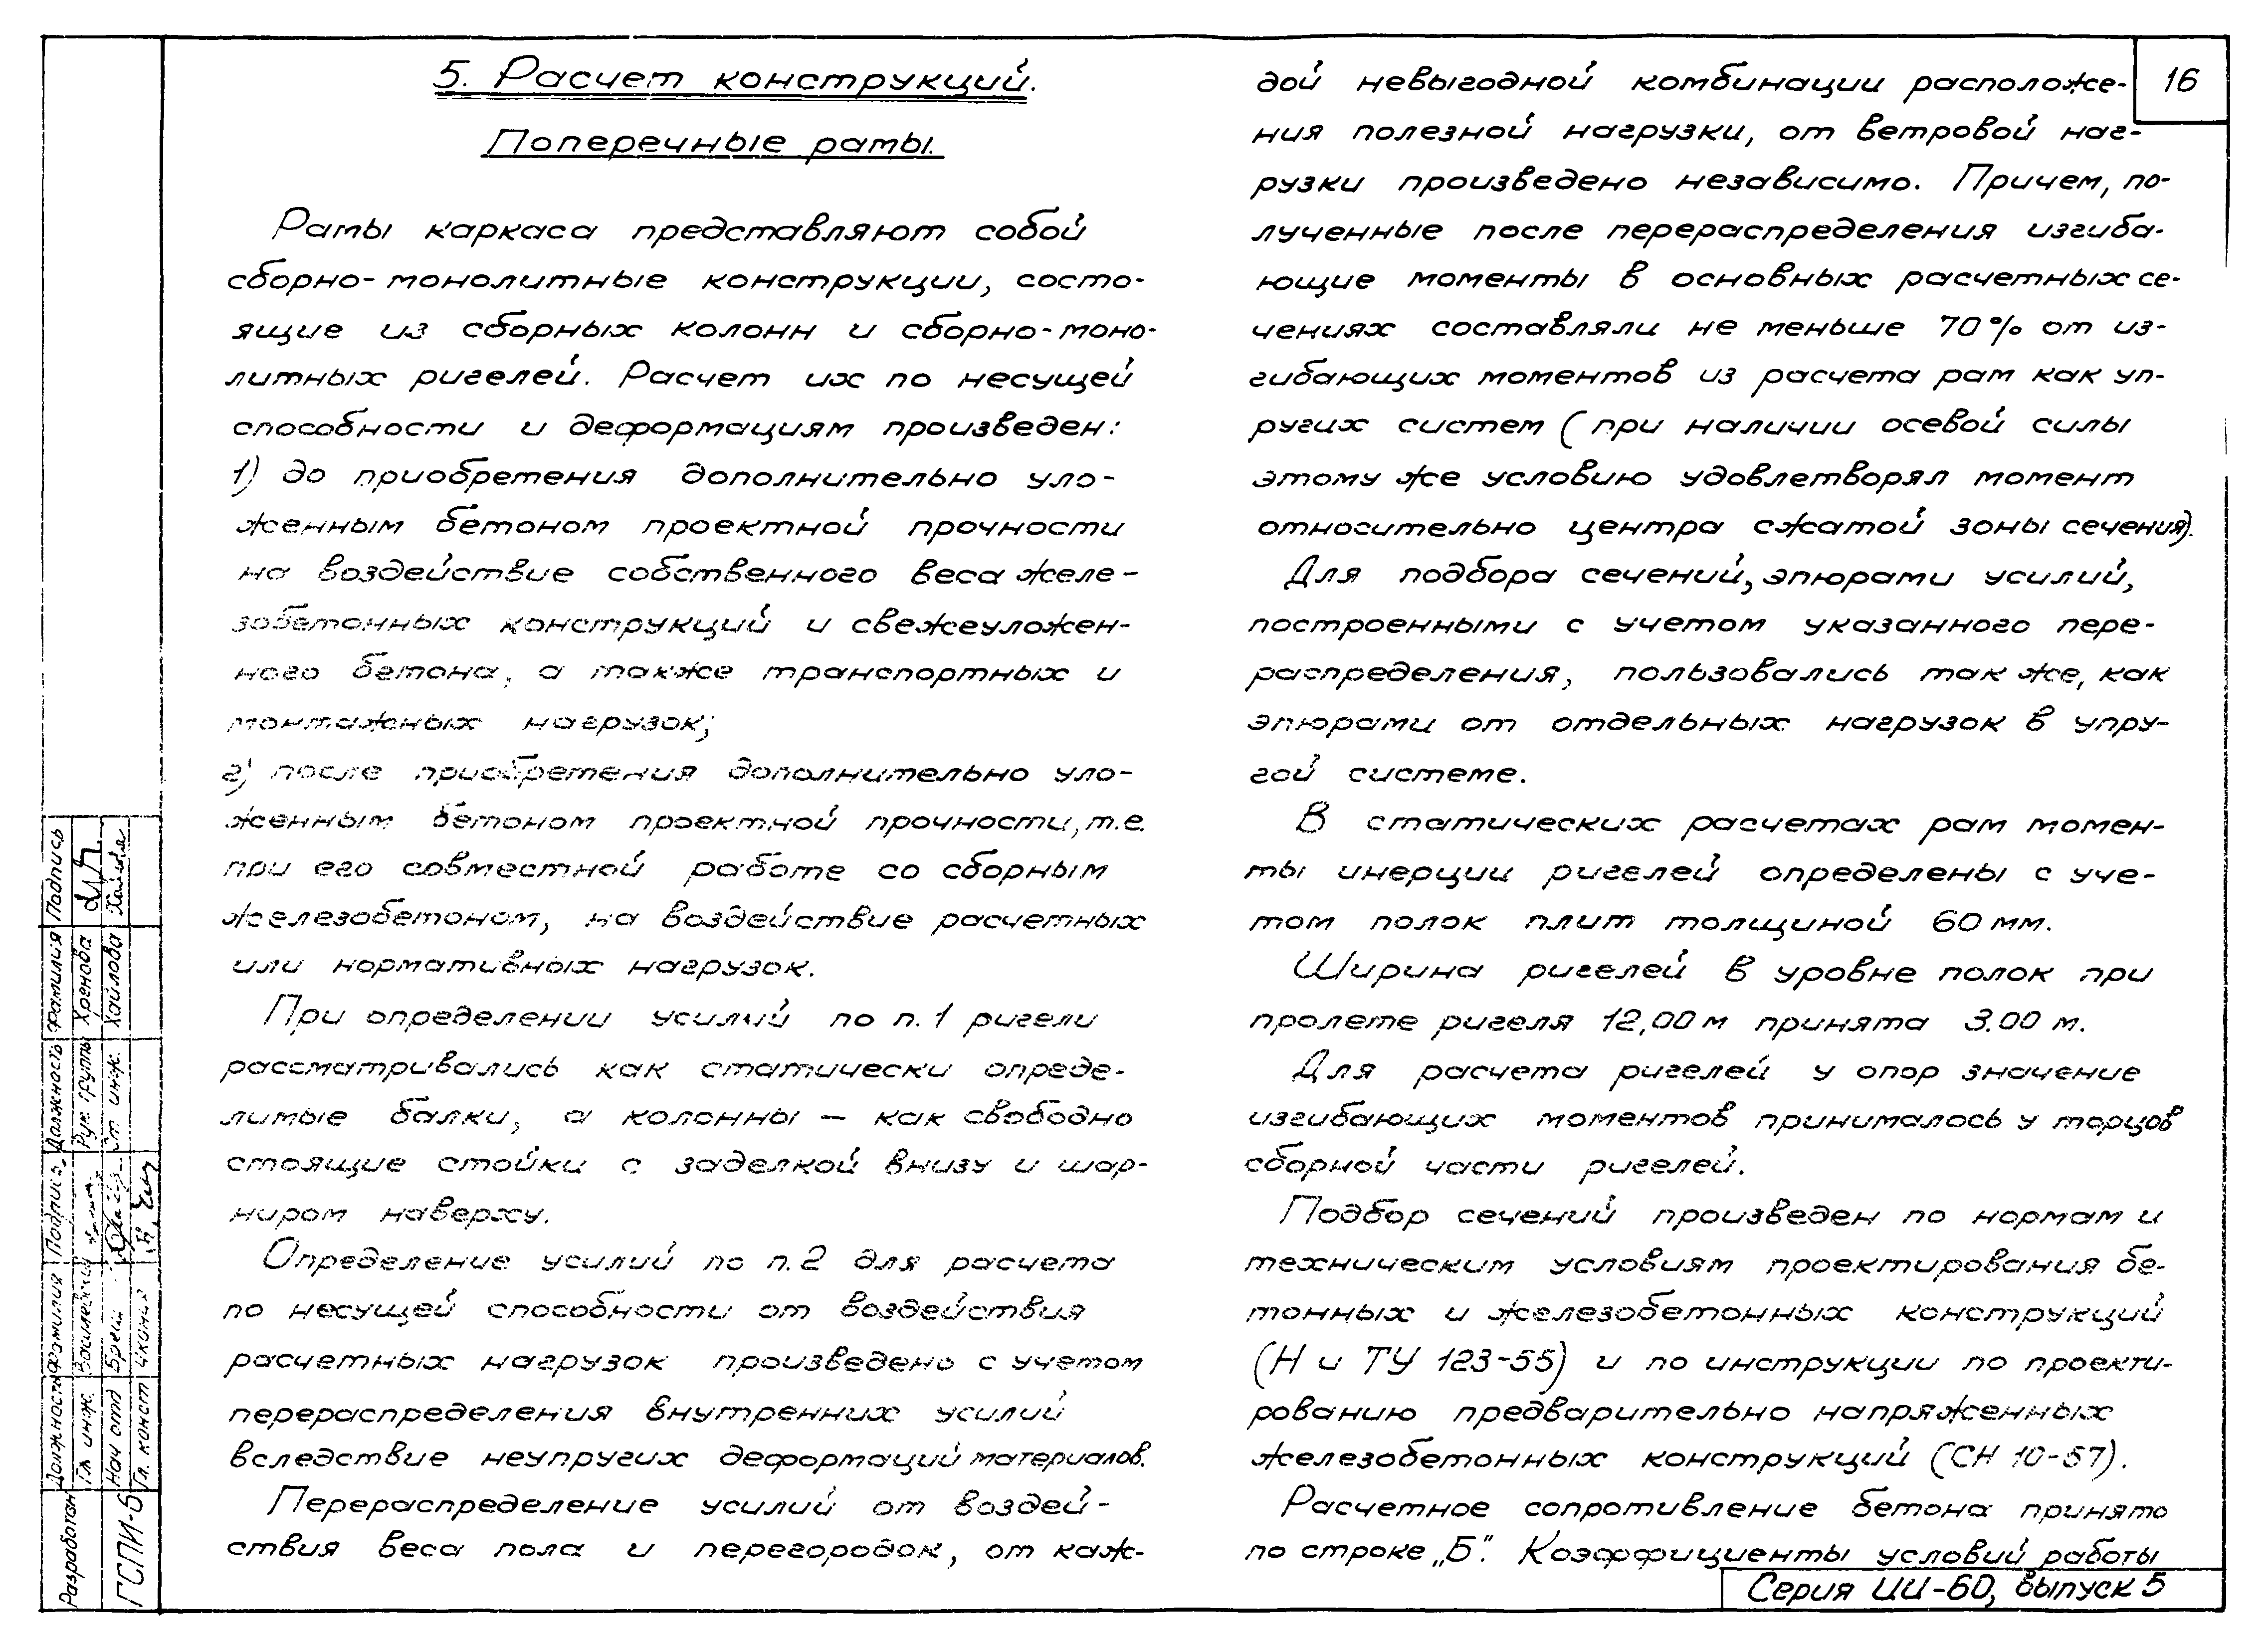 5. Расчет конструкций.
Поперечные рамы.
Рамы каркаса представляют собой
сборно-монолитные конструкции, состо-
ящие из сборных колонн и сборно-моно-
литных ригелей. Расчет их по несущей
способности и деформациям произведен:
1) до приобретения дополнительно уло-
женным бетоном проектной прочности
на воздействие собственного веса желе-
зобетонных конструкций и свежеуложен-
ного бетона, а также транспортных и
монтажных нагрузок;
2) после приобретения дополнительно уло-
женным бетоном проектной прочности, т.е.
при его совместной работе со сборным
железобетоном, на воздействие расчетных
или нормативных нагрузок.
При определении усилий по п.1 ригели
рассматривались как статически опреде-
лимые балки, а колонны — как свободно
стоящие стойки с заделкой внизу и шар-
ниром наверху.
Определение усилий по п.2 для расчета
по несущей способности от воздействия
расчетных нагрузок произведено с учетом
перераспределения внутренних усилий
вследствие неупругих деформаций материалов.
Перераспределение усилий от воздей-
ствия веса пола и перегородок, от каж-
дой невыгодной комбинации расположе-
ния полезной нагрузки, от ветровой наг-
рузки произведено независимо. Причем, по-
лученные после перераспределения изгиба-
ющие моменты в основных расчетных се-
чениях составляли не меньше 70% от из-
гибающих моментов из расчета рам как уп-
ругих систем (при наличии осевой силы
этому же условию удовлетворял момент
относительно центра сжатой зоны сечения).
Для подбора сечений, эпюрами усилий,
построенными с учетом указанного пере-
распределения, пользовались так же, как
эпюрами от отдельных нагрузок в упру-
гой системе.
В статических расчетах рам момен-
ты инерции ригелей определены с уче-
том полок плит толщиной 60 мм.
Ширина ригелей в уровне полок при
пролете ригеля 12,00 м принята 3.00 м.
Для расчета ригелей у опор значение
изгибающих моментов принималось у торцов
сборной части ригелей.
Подбор сечений произведен по нормам и
техническим условиям проектирования бе-
тонных и железобетонных конструкций
(Н и ТУ 123-55) и по инструкции по проекти-
рованию предварительно напряженных
железобетонных конструкций (СН 10-57).
Расчетное сопротивление бетона принято
по строке „Б". Коэффициенты условий работы
16
Серия ИИ-60, выпуск 5
Должность Фамилия Подпись
Рук. группы
Ст. инж. Хайлова Хайлова
Должность Фамилия Подпись
Гл. инж.
Нач. отд.
Гл. конст.
Разработан
ГСПИ-5